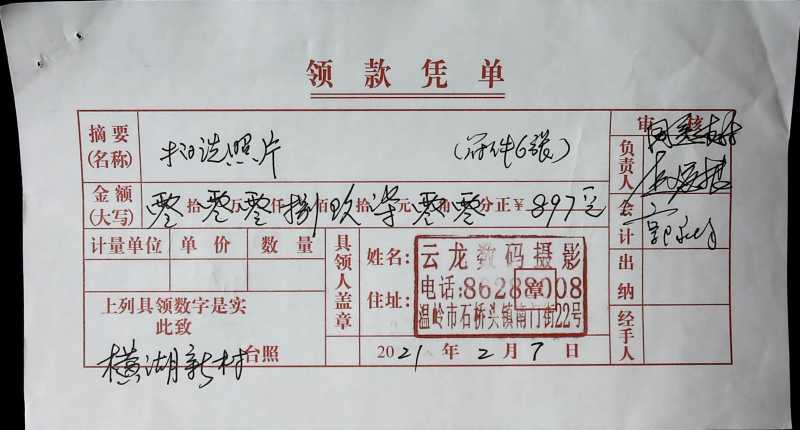 领款凭单
摘要(名称) 扫洗照片 (附件6张)
审核
同意
负责人
金额(大写) 零拾零万零仟捌佰玖拾柒元零角零分正¥897元
会计
计量单位 单价 数量
具领人盖章
姓名: 云龙数码摄影
电话:86288008
住址: 温岭市石桥头镇南门街22号
章
出纳
上列具领数字是实
此致
横湖新村台照
2021年2月7日
经手人